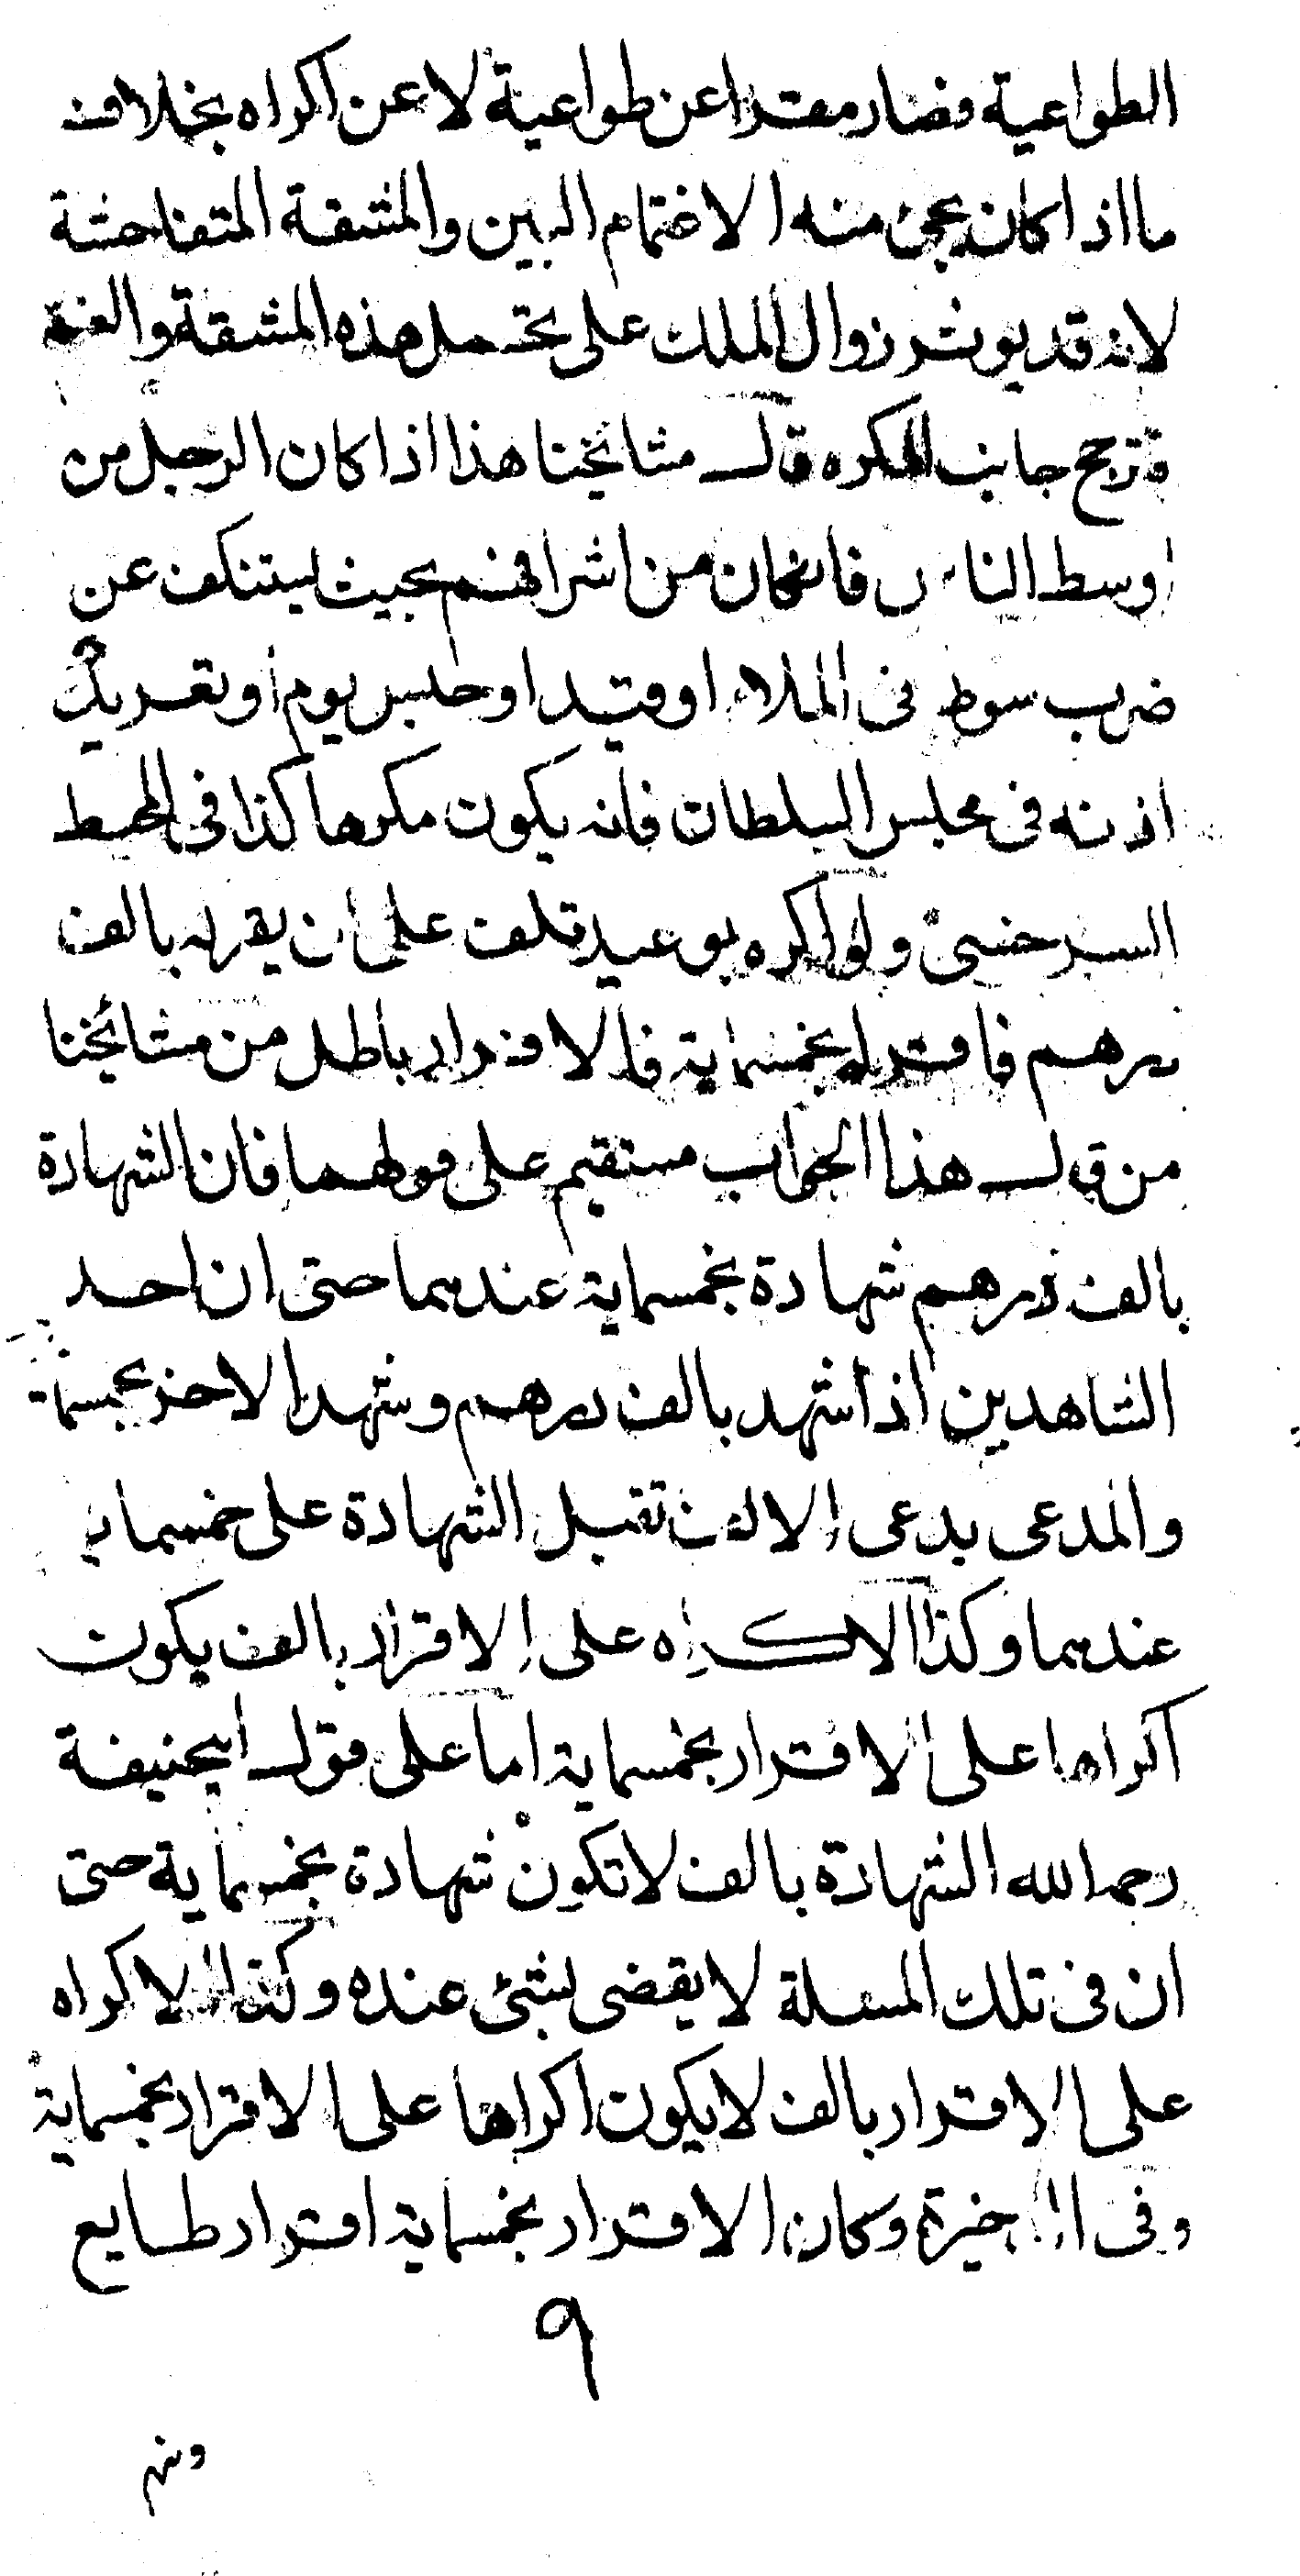 الطواعية فصار مقرا عن طواعية لا عن اكراه بخلاف
ما اذا كان يجئ منه الاغتمام البين والمشقة المتفاحشة
لانه قد يوثر زوال الملك على تحمل هذه المشقة والغم
فترجح جانب المكره قال مشائخنا هذا اذا كان الرجل من
اوسط الناس فان كان من اشرافهم بحيث يستنكف عن
ضرب سوط فى الملاء او قيد او حبس يوم او تعريك
اذنه فى مجلس السلطان فانه يكون مكرها كذا فى المحيط
السرخسى ولو اكره بوعيد تلف على ان يقر له بالف
درهم فاقر له بخمسماية فالاقرار باطل من مشائخنا
من قال هذا الجواب مستقيم على قولهما فان الشهادة
بالف درهم شهادة بخمسماية عندهما حتى ان احد
الشاهدين اذا شهد بالف درهم وشهد الاخر بخمسماية
والمدعى يدعى الالف تقبل الشهادة على خمسماية
عندهما وكذا الاكراه على الاقرار بالف يكون
اكراها على الاقرار بخمسماية اما على قول ابيحنيفة
رحمه الله الشهادة بالف لا تكون شهادة بخمسماية حتى
ان فى تلك المسئلة لا يقضى بشئ عنده وكذا الاكراه
على الاقرار بالف لا يكون اكراها على الاقرار بخمسماية
وفى الاخيرة وكان الاقرار بخمسماية اقرار طايع
٩
ومنهم